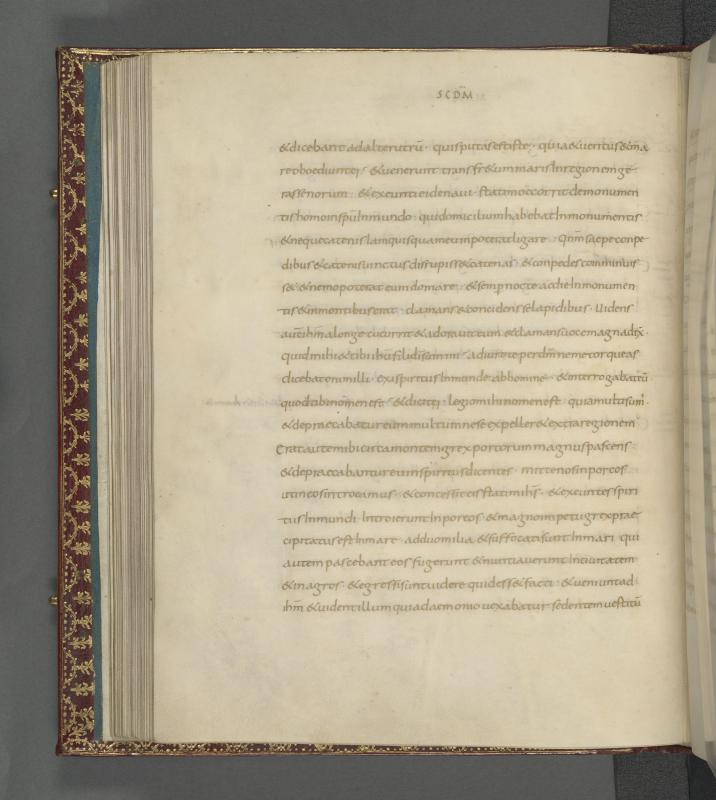 SCDM̄
&dicebant adalterutrū· quisputasestiste· quia&uentus&ma
reoboediuntei· &uenerunt transfr&ummaris Inregionemge
rassenorum· &exeuntieidenaui· statimoccurrit demonumen
tis homoinspū Inmundo· quidomicilium habebat Inmonumentis
&nequecatenis Iamquisquameumpoteratligare· Qnm̄ saepe conpe
dibus &catenis uinctus disrupiss&catenas· &conpedes comminuis
s&· &nemopoterat eum domare· &semp nocte acdie Inmonumen
tis &inmontibuserat· clamans &concidens selapidibus· Uidens
aut̄ ihm̄ alonge cucurrit &adorauiteum &clamansuocemagnadix̄·
quidmihi &tibi ihū filidisummi· adiuroteperdm̄ nemetorqueas
dicebatenimilli· exispiritus Inmunde abhomine· &interrogabateū
quodtibinomenest· &dicitei· legiomihinomenest· quiamultisum̄·
&depraecabatureummultum neseexpeller&extraregionem·
Eratautemibicircamontemgrexporcorum magnuspascens·
&depraecabantureumspiritus dicentes· mittenosinporcos
utineosintroeamus· &concessiteisstatimihs̄· &exeuntesspiri
tus Inmundi Introierunt Inporcos· &magnoimpetugrexprae
cipitatusest Inmare· adduomilia &suffocatisunt Inmari· qui
autem pascebanteos fugerunt &nuntiauerunt Inciuitatem
&inagros· &egressisuntuidere quidess&facti· &ueniuntad
ihm̄ &uidentillumquiadaemoniouexabatur sedentemuestitū